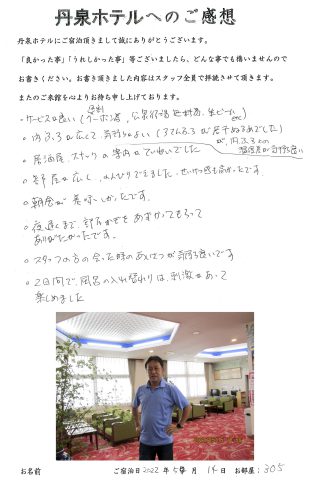 丹泉ホテルへのご感想
丹泉ホテルにご宿泊頂きまして誠にありがとうございます。
「良かった事」「うれしかった事」等ございましたら、どんな事でも構いませんので
お書きください。お書き頂きました内容はスタッフ全員で拝読させて頂きます。
またのご来館を心よりお待ち申し上げております。
○サービスが良い(クーポン券、
etc)
○内ふろが広くて、気持ちのよい
○居酒屋、スナックの案内がていねいでした
○部屋が広く、のんびりできました。せいけつ感も良かったです。
○朝食が美味しかったです。
○夜遅くまで、部屋かぎをあずかってもらって
ありがたかったです。
○スタッフの方の会った時のあいさつが気持ち良いです
○2日間で風呂の入れ替わりは、刺激があって
楽しめました
お名前 ご宿泊日2022年5月14日 お部屋:305